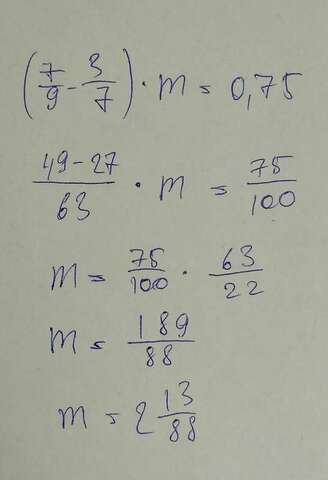 (7/9 - 3/7) · m = 0,75
49-27/63 · m = 75/100
m = 75/100 · 63/22
m = 189/88
m = 2 13/88